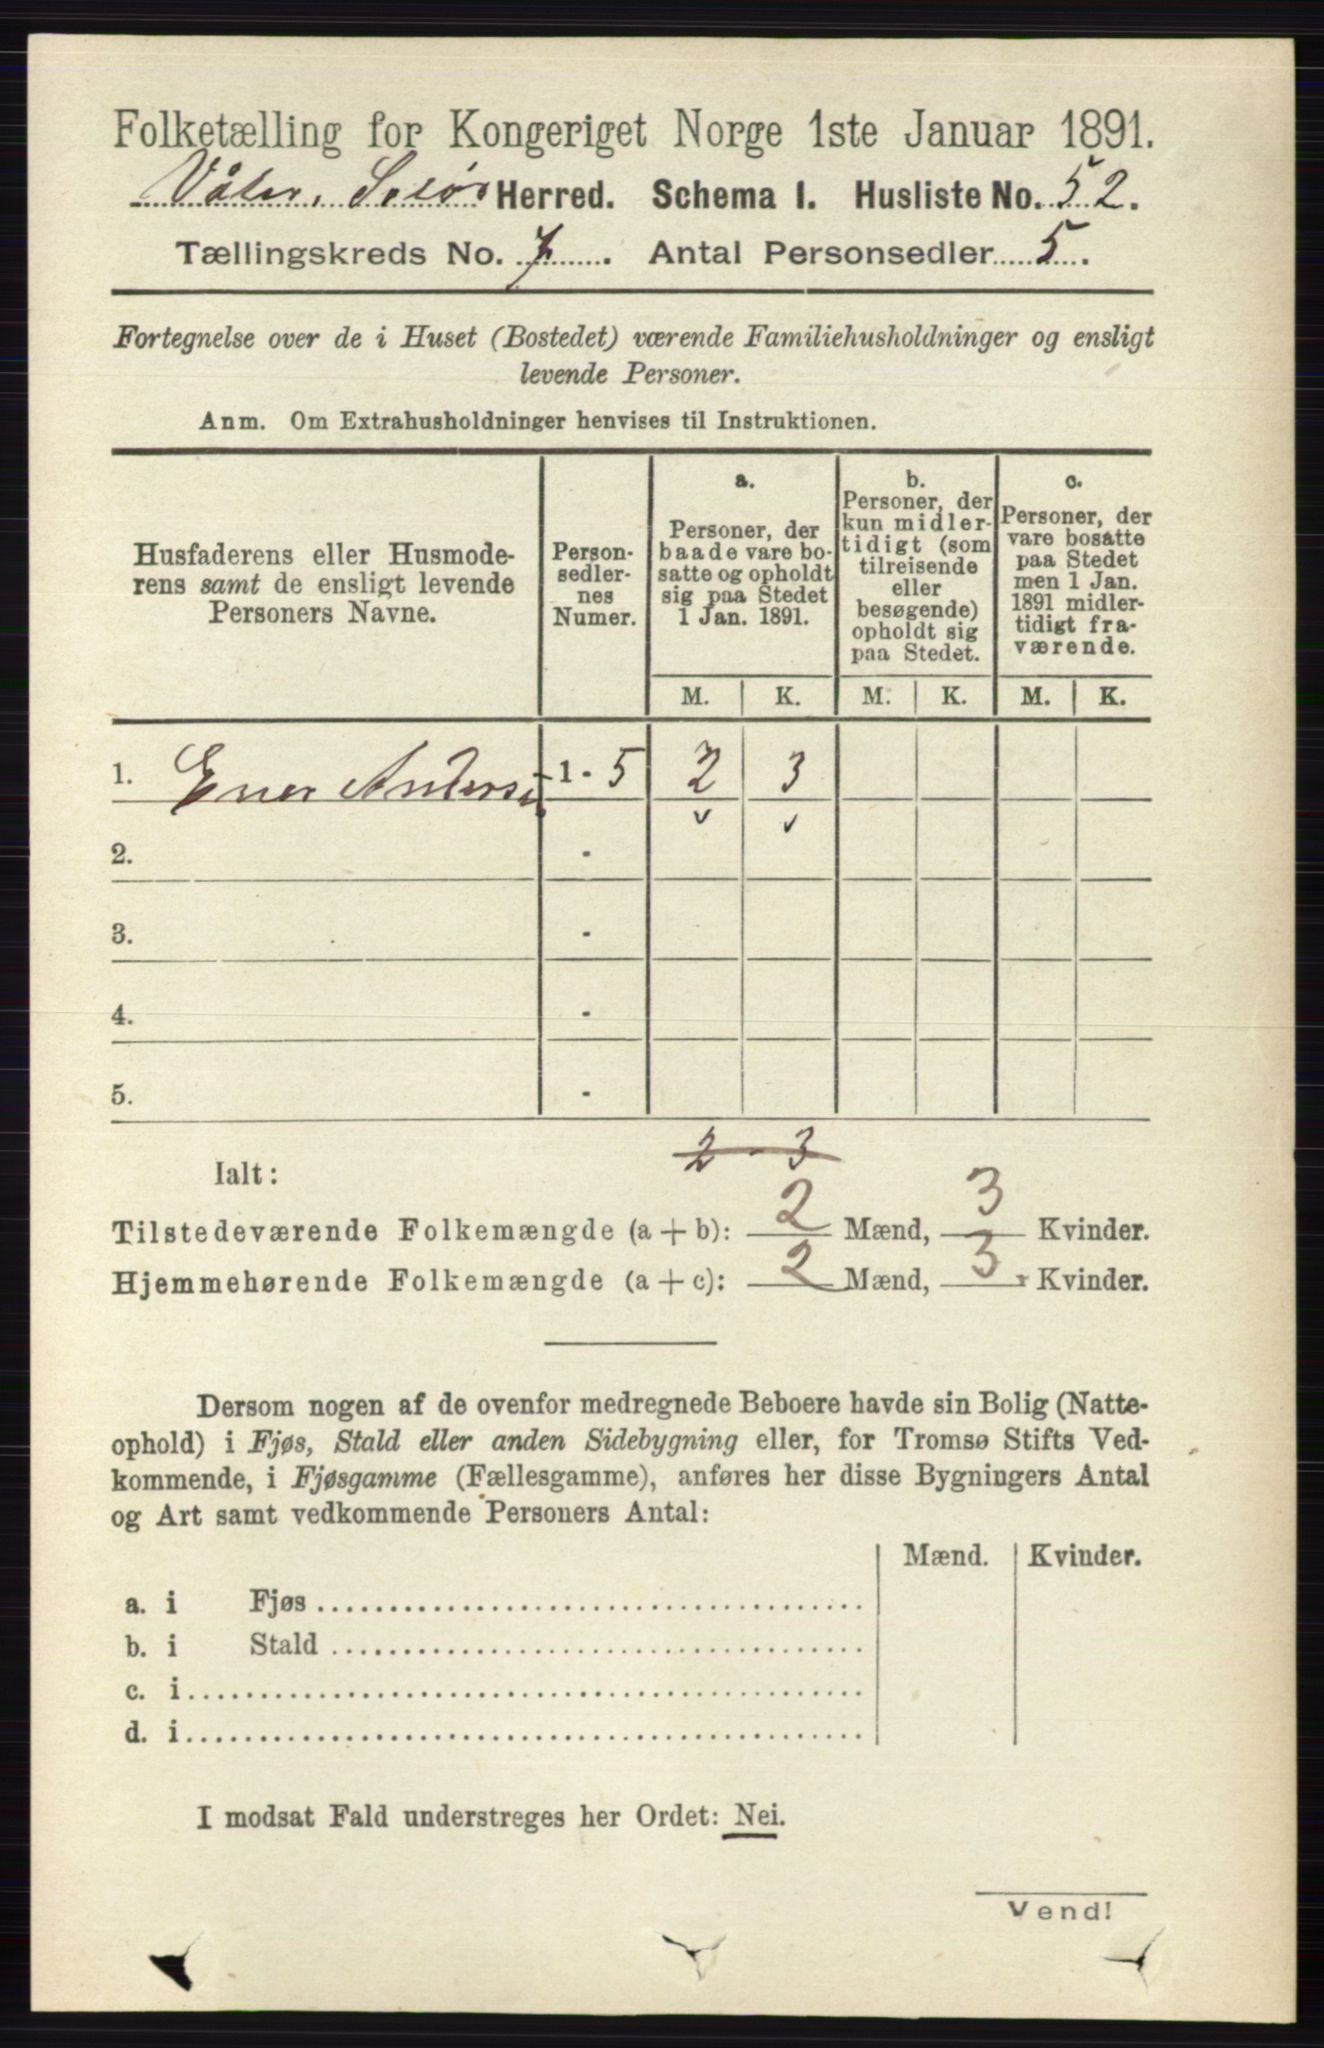 Folketælling for Kongeriget Norge 1ste Januar 1891.
Våler, Solør Herred. Schema I. Husliste No. 52.
Tællingskreds No. 7. Antal Personsedler 5.
Fortegnelse over de i Huset (Bostedet) værende Familiehusholdninger og ensligt
levende Personer.
Anm. Om Extrahusholdninger henvises til Instruktionen.
Husfaderens eller Husmode-
rens samt de ensligt levende
Personers Navne.
Person-
sedler-
nes
Numer.
a.
Personer, der
baade vare bo-
satte og opholdt
sig paa Stedet
1 Jan. 1891.
b.
Personer, der
kun midler-
tidigt (som
tilreisende
eller
besøgende)
opholdt sig
paa Stedet.
c.
Personer, der
vare bosatte
paa Stedet
men 1 Jan.
1891 midler-
tidigt fra-
værende.
M. K. M. K. M. K.
1. Ener Andersen 1 - 5 2 3
2. -
3. -
4. -
5. -
2 - 3
Ialt:
Tilstedeværende Folkemængde (a + b): 2 Mænd, 3 Kvinder.
Hjemmehørende Folkemængde (a + c): 2 Mænd, 3 Kvinder.
Dersom nogen af de ovenfor medregnede Beboere havde sin Bolig (Natte-
ophold) i Fjøs, Stald eller anden Sidebygning eller, for Tromsø Stifts Ved-
kommende, i Fjøsgamme (Fællesgamme), anføres her disse Bygningers Antal
og Art samt vedkommende Personers Antal:
Mænd. Kvinder.
a. i Fjøs
b. i Stald
c. i
d. i
I modsat Fald understreges her Ordet: Nei.
Vend!